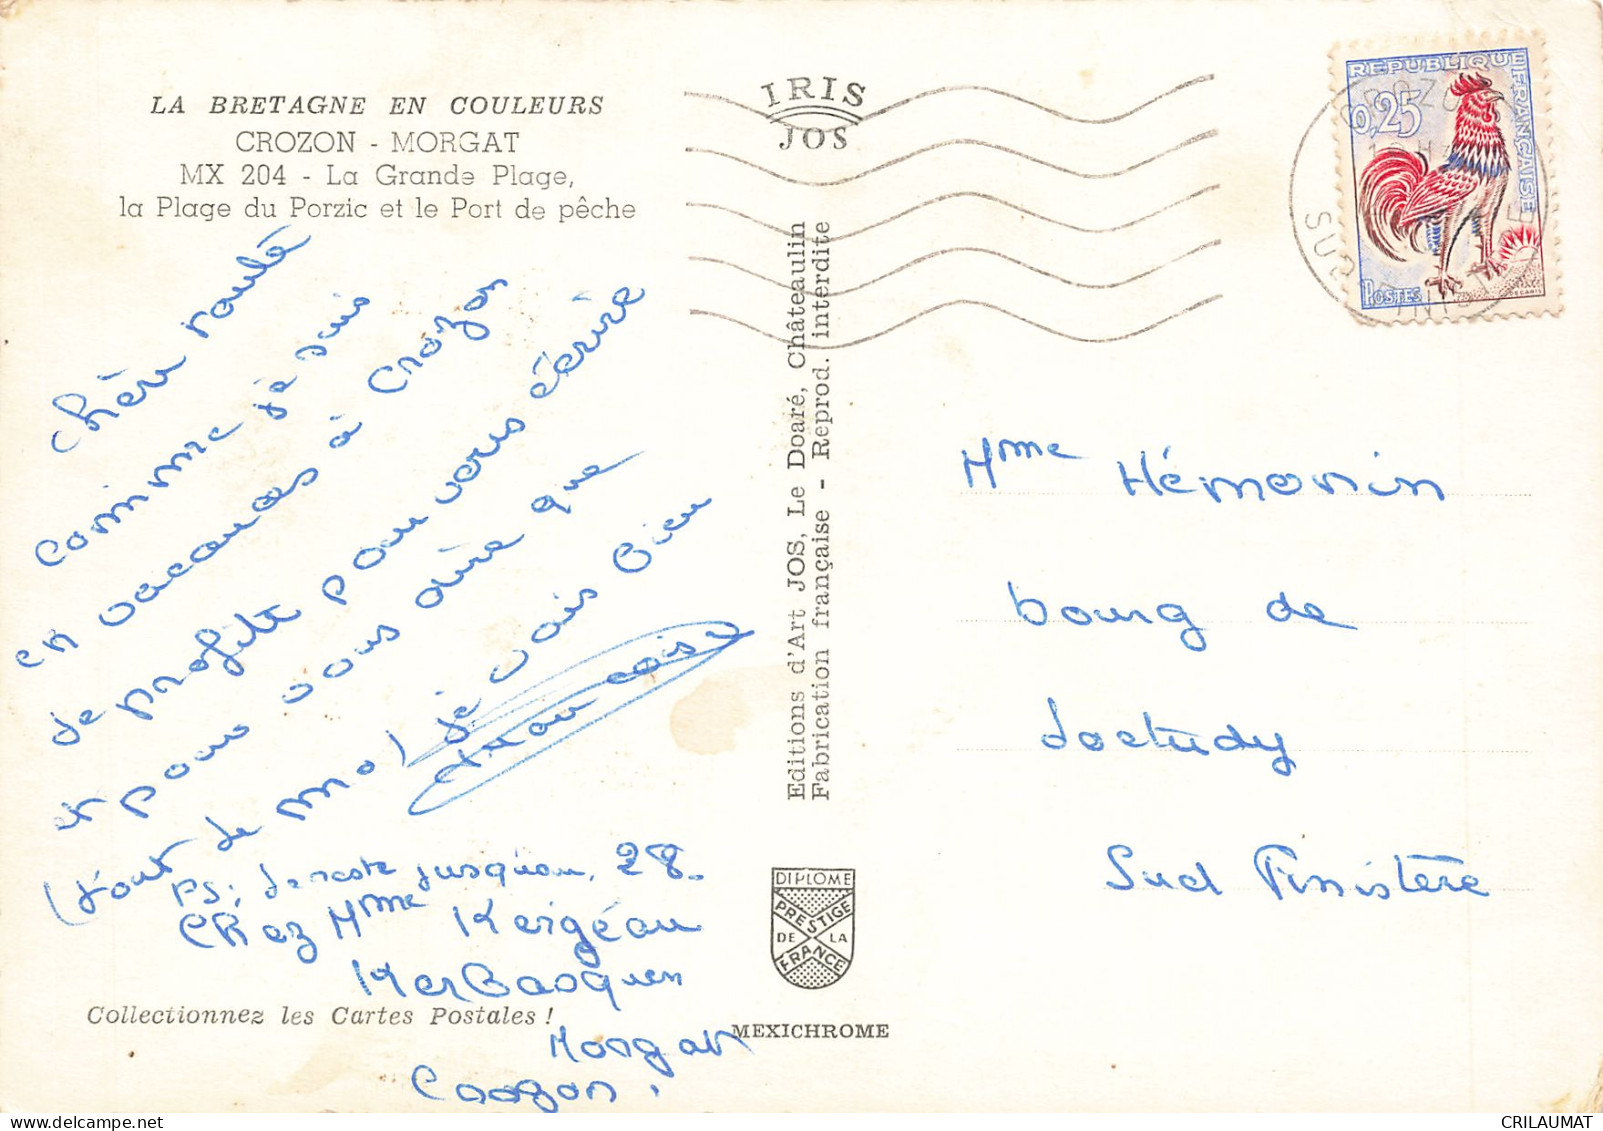 LA BRETAGNE EN COULEURS
CROZON - MORGAT
MX 204 - La Grande Plage,
la Plage du Porzic et le Port de pêche
chère
comme je suis
en vacances à Crozon
je profite pour vous écrire
et pour vous dire que
(tout de moi) je vais bien
Françoise
PS: Je reste jusqu'au 28.
chez Mme Kergéau
Morgat
Crozon.
Collectionnez les Cartes Postales !
IRIS
JOS
Editions d'Art JOS, Le Doaré, Châteaulin
Fabrication française - Reprod. interdite
DIPLOME
PRESTIGE
DE LA
FRANCE
MEXICHROME
REPUBLIQUE FRANÇAISE
0,25
POSTES
DECARIS
Mme Hémonin
bourg de
Loctudy
Sud Finistère
CRILAUMAT